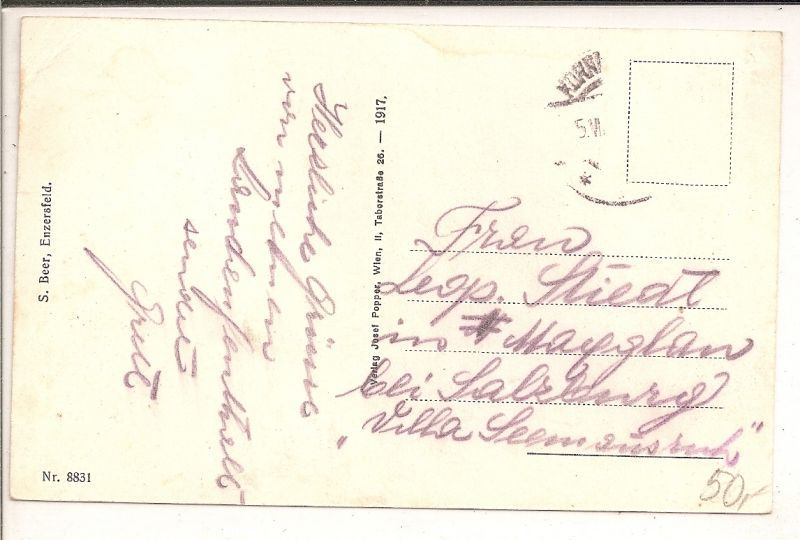 Herzliche Grüsse
von meinem
Landaufenthalt
sendet
S. Beer, Enzersfeld.
Nr. 8831
Verlag Josef Popper, Wien, II, Taborstraße 26. — 1917.
5.VI
Frau
Leop. Stiedl
in Maxglan
bei Salzburg
"Villa Seemannsruh"
50,